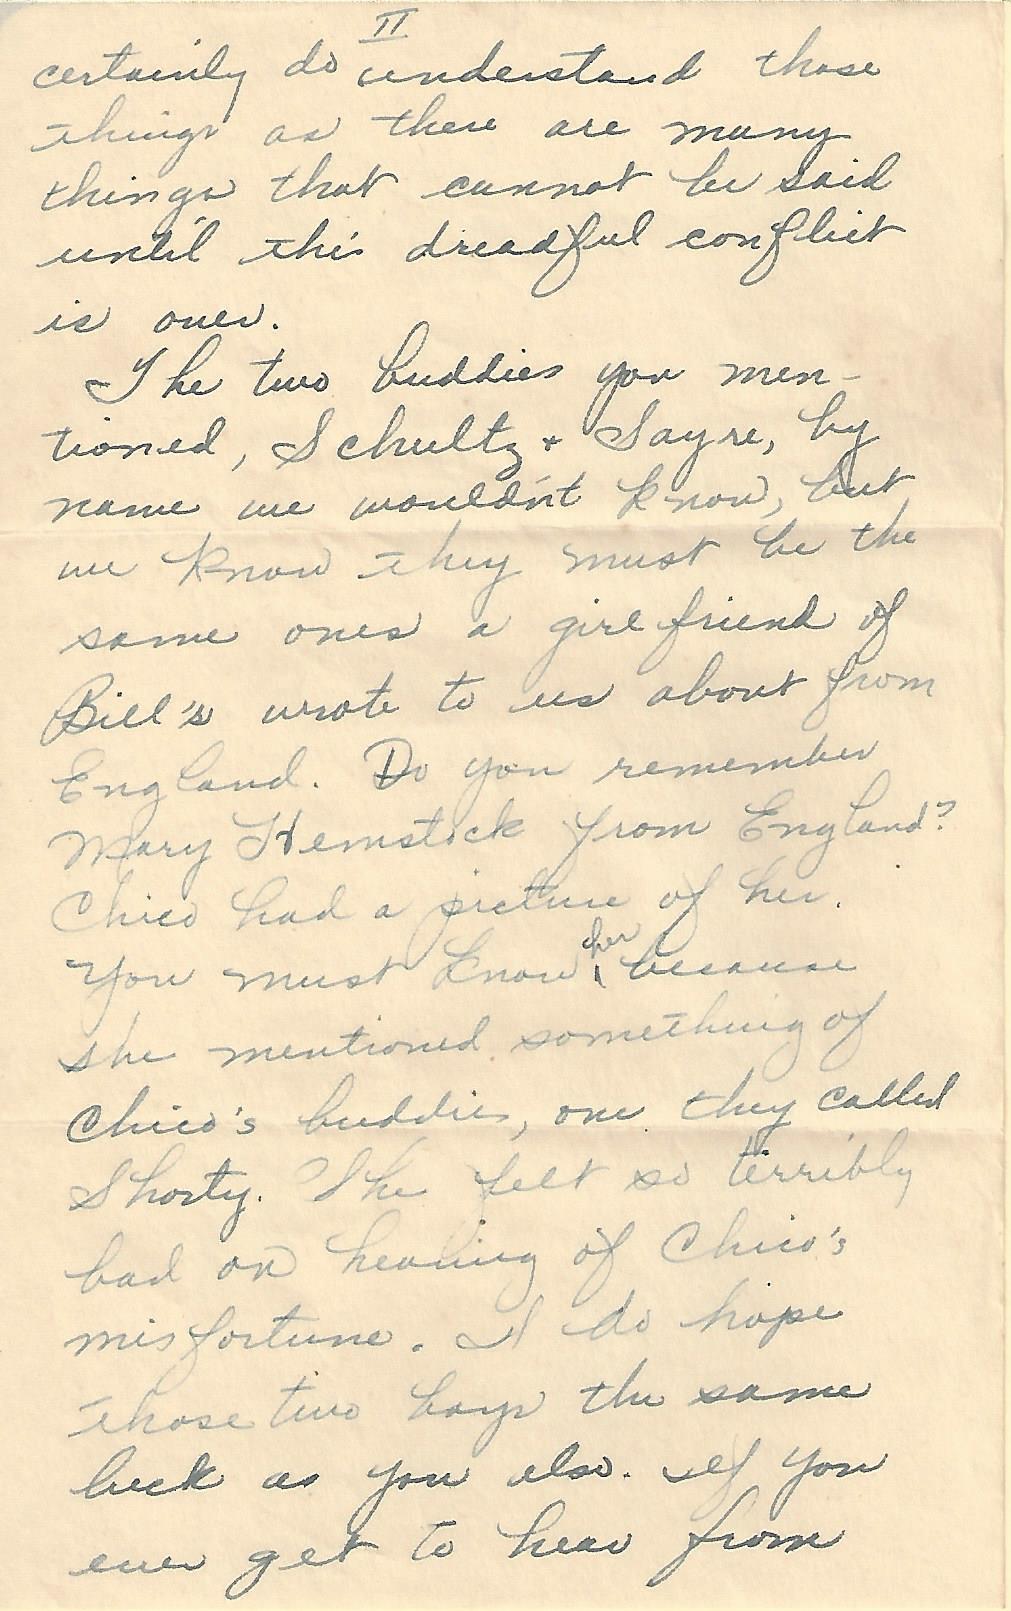 II
certainly do understand those
things as there are many
things that cannot be said
until this dreadful conflict
is over.
The two buddies you men-
tioned, Schultz + Sayre, by
name we wouldn't know, but
we know they must be the
same ones a girl friend of
Bill's wrote to us about from
England. Do you remember
Mary Hemstick from England?
Chico had a picture of her.
You must know her because
she mentioned something of
Chico's buddies, one they called
Shorty. She felt so terribly
bad on hearing of Chico's
misfortune. I do hope
those two boys the same
luck as you also. If you
ever get to hear from